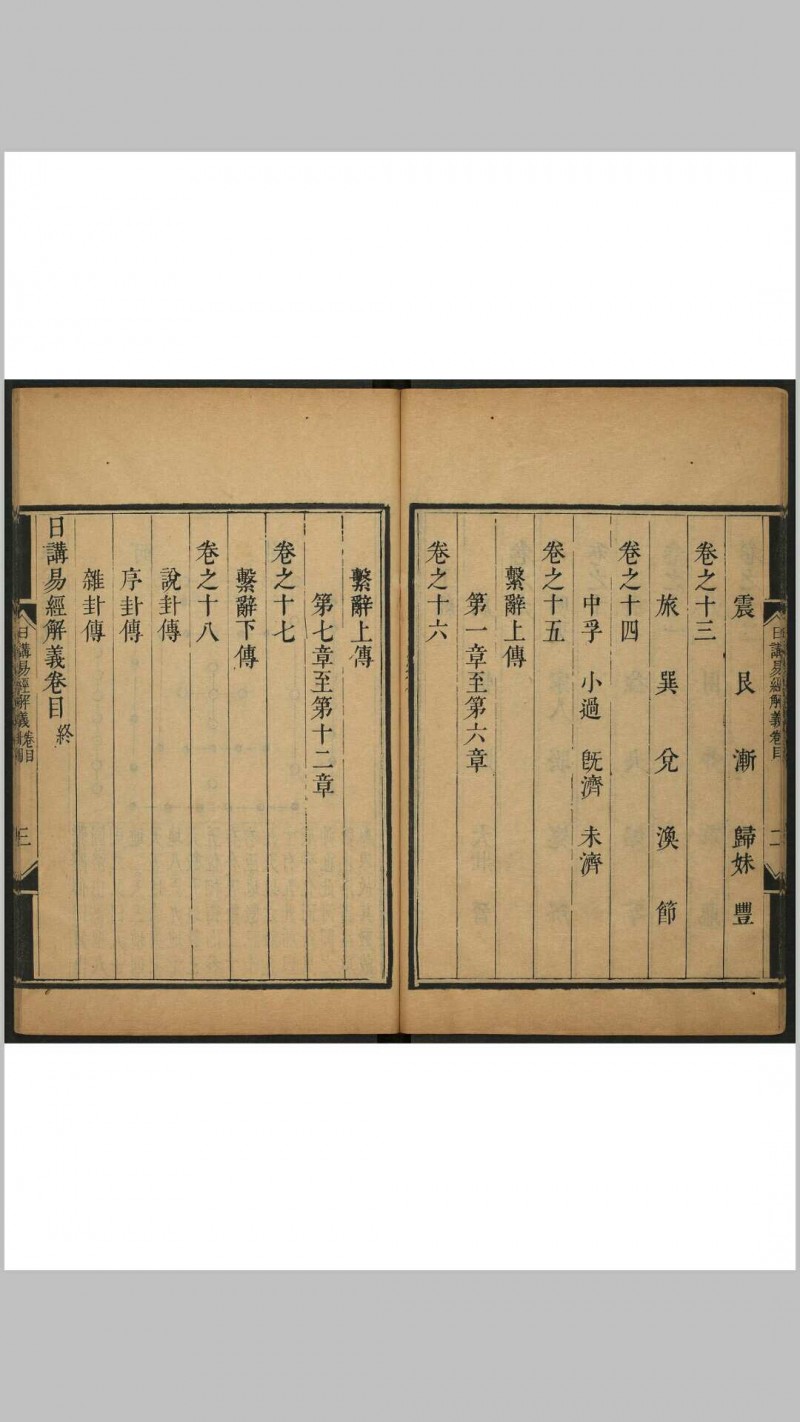 震 艮 漸 歸妹 豐
卷之十三
旅 巽 兌 渙 節
卷之十四
中孚 小過 旣濟 未濟
卷之十五
繫辭上傳
第一章至第六章
卷之十六
日講易經解義 卷目 二
繫辭上傳
第七章至第十二章
卷之十七
繫辭下傳
卷之十八
說卦傳
序卦傳
雜卦傳
日講易經解義卷目 終
日講易經解義 卷目 三